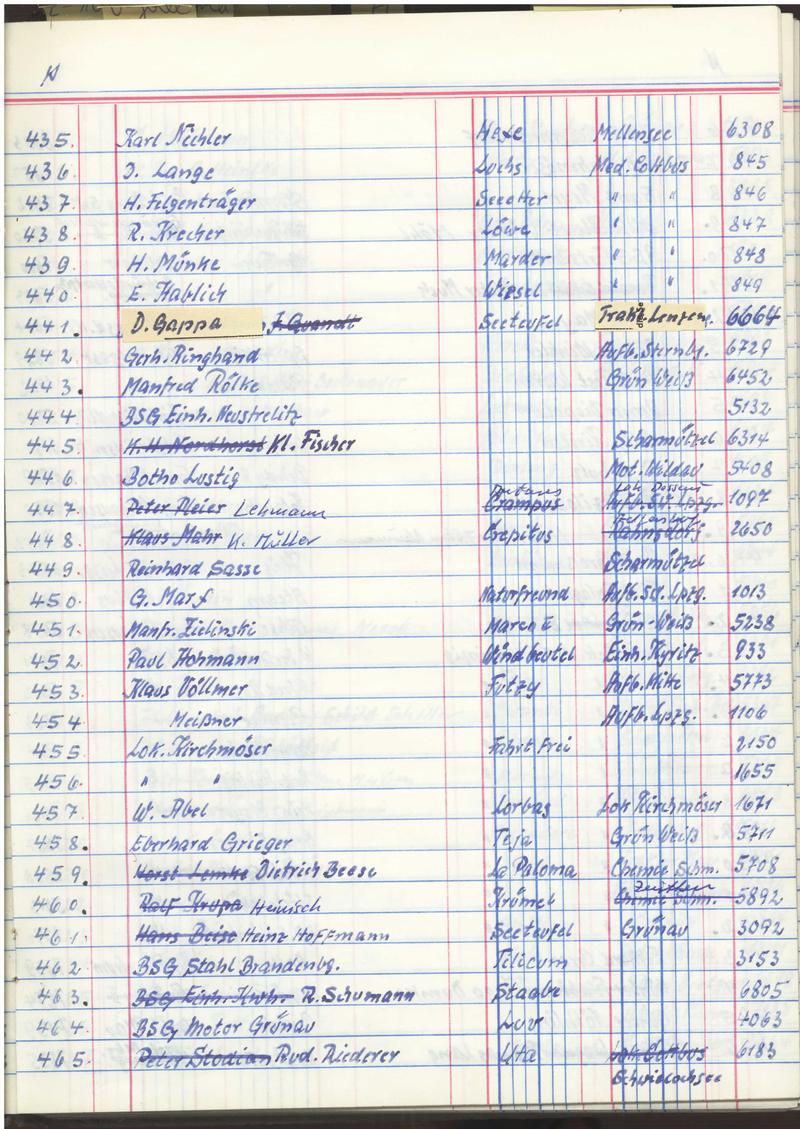 435. Karl Nechler Hexe Mellensee 6308
436. J. Lange Luchs Med. Cottbus 845
437. H. Felgenträger Seeotter " " 846
438. R. Krecher Löwe " " 847
439. H. Münke Marder " " 848
440. E. Hablich Wiesel " " 849
441. D. Gappa J. Quandt Seeteufel Trakt. 6664
442. Gerh. Ringhand Aufb. Sternbg. 6729
443. Manfred Rölke Grün Weiß 6452
444. BSG Einh. Neustrelitz 5132
445. K. H. Nordhorst Kl. Fischer Scharmützel 6314
446. Botho Lustig Mot. Wildau 5408
447. Peter Meier Lehmann Crampus Aufb. Lpzg. 1097
448. Klaus Mahr K. Müller Crepitus Rahnsdorf 2650
449. Reinhard Sasse Scharmützel
450. G. Marx Naturfreund Aufb. Lpzg. 1013
451. Manfr. Zielinski Maren II Grün-Weiß 5238
452. Paul Hohmann Windbeutel Einh. Kyritz 933
453. Klaus Völlmer Futzy Aufb. Mitte 5773
454 Meißner Aufb. Lpzg. 1106
455. Lok. Kirchmöser Fahrt frei 2150
456. " " 1655
457. W. Abel Lorbas Lok Kirchmöser 1671
458. Eberhard Grieger Teja Grün Weiß 5711
459. Horst Lemke Dietrich Beese La Paloma Chemie Schm. 5708
460. Ralf Krupa Heinisch Krümel Chemie Schm. Zeuthen 5892
461. Hans Beise Heinz Hoffmann Seeteufel Grünau 3092
462. BSG Stahl Brandenbg. Tilicum 3153
463. BSG Einh. R. Schumann Staabe 6805
464. BSG Motor Grünau Luv 4063
465. Peter Stodian Rud. Riederer Uta Lok. Cottbus 6183
Schwielochsee